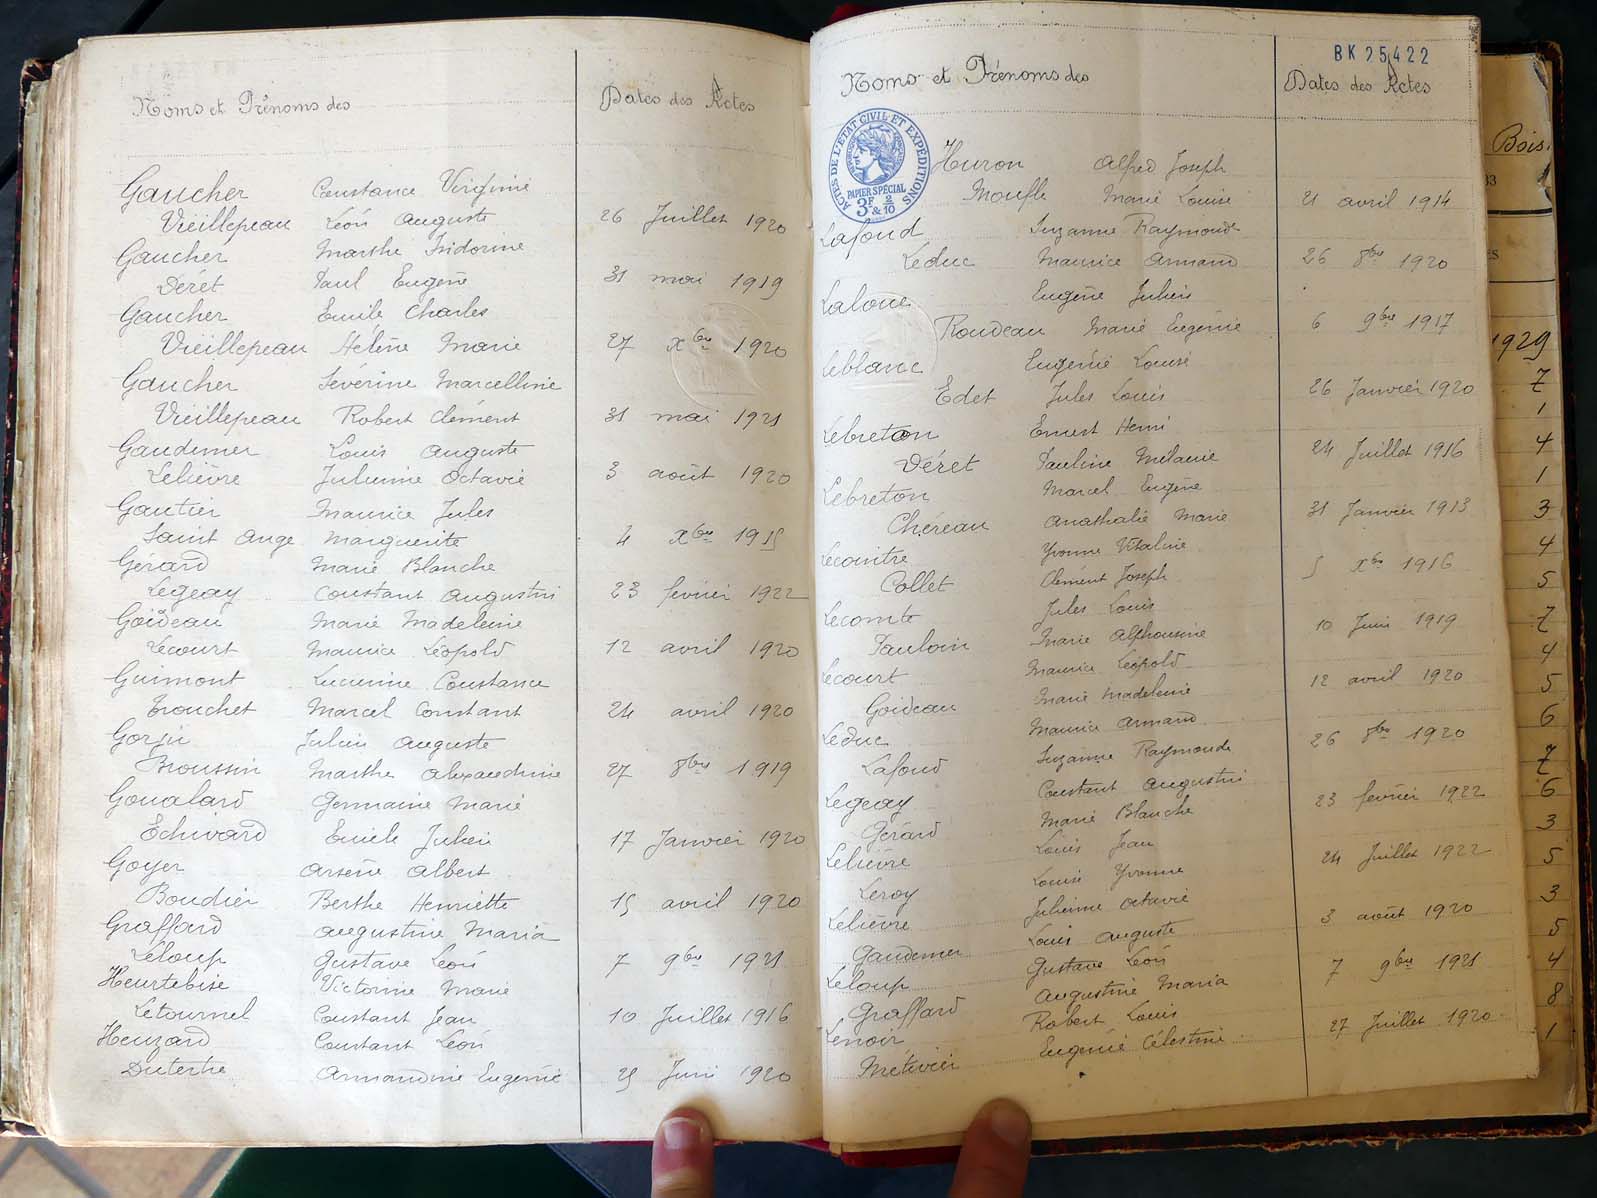 Noms et Prénoms des Dates des Actes
Gaucher Constance Virginie
Vieillepeau Léon Auguste 26 Juillet 1920
Gaucher Marthe Isidorine
Déret Paul Eugène 31 mai 1919
Gaucher Emile Charles
Vieillepeau Hélène Marie 27 Xbre 1920
Gaucher Séverine Marcelline
Vieillepeau Robert Clément 31 mai 1921
Gaudemer Louis Auguste
Lelièvre Julienne Octavie 3 août 1920
Gautier Maurice Jules
Saint Ange Marguerite 4 Xbre 1915
Gérard Marie Blanche
Legeay Constant Augustin 23 février 1922
Goideau Marie Madeleine
Lecourt Maurice Léopold 12 avril 1920
Guimont Lucienne Constance
Trouchet Marcel Constant 24 avril 1920
Gorju Julien Auguste
Broussin Marthe Alexandrine 27 8bre 1919
Goualard Germaine Marie
Echivard Emile Julien 17 Janvier 1920
Goyer Arsène Albert
Boudier Berthe Henriette 15 avril 1920
Graffard Augustine Maria
Leloup Gustave Léon 7 9bre 1921
Heurtebise Victorine Marie
Letournel Constant Jean 10 Juillet 1916
Heuzard Constant Léon
Dutertre Armandine Eugénie 25 Juin 1920
BK 25422
Noms et Prénoms des Dates des Actes
ACTES DE L'ETAT CIVIL ET EXPÉDITIONS
PAPIER SPÉCIAL
3F & 2/10
Huron Alfred Joseph
Moufle Marie Louise 21 avril 1914
Lafoud Suzanne Raymonde
Leduc Maurice Armand 26 8bre 1920
Laloue Eugène Julien
Rondeau Marie Eugénie 6 9bre 1917
Leblanc Eugénie Louise
Edet Jules Louis 26 Janvier 1920
Lebreton Ernest Henri
Déret Pauline Mélanie 24 Juillet 1916
Lebreton Marcel Eugène
Chéreau Anathalie Marie 31 Janvier 1913
Lecointre Yvonne Vitaline
Collet Clément Joseph 5 Xbre 1916
Lecomte Jules Louis
Pauloin Marie Alphonsine 10 Juin 1919
Lecourt Maurice Léopold
Goideau Marie Madeleine 12 avril 1920
Leduc Maurice Armand
Lafoud Suzanne Raymonde 26 8bre 1920
Legeay Constant Augustin
Gérard Marie Blanche 23 février 1922
Lelièvre Louis Jean
Leroy Louise Yvonne 24 Juillet 1922
Lelièvre Julienne Octavie
Gaudemer Louis Auguste 3 août 1920
Leloup Gustave Léon
Graffard Augustine Maria 7 9bre 1921
Lenoir Robert Louis
Métivier Eugénie Célestine 27 Juillet 1920
Bois.
33
ES
1929
7
1
4
1
3
4
5
7
4
5
6
7
6
3
5
3
5
4
8
1